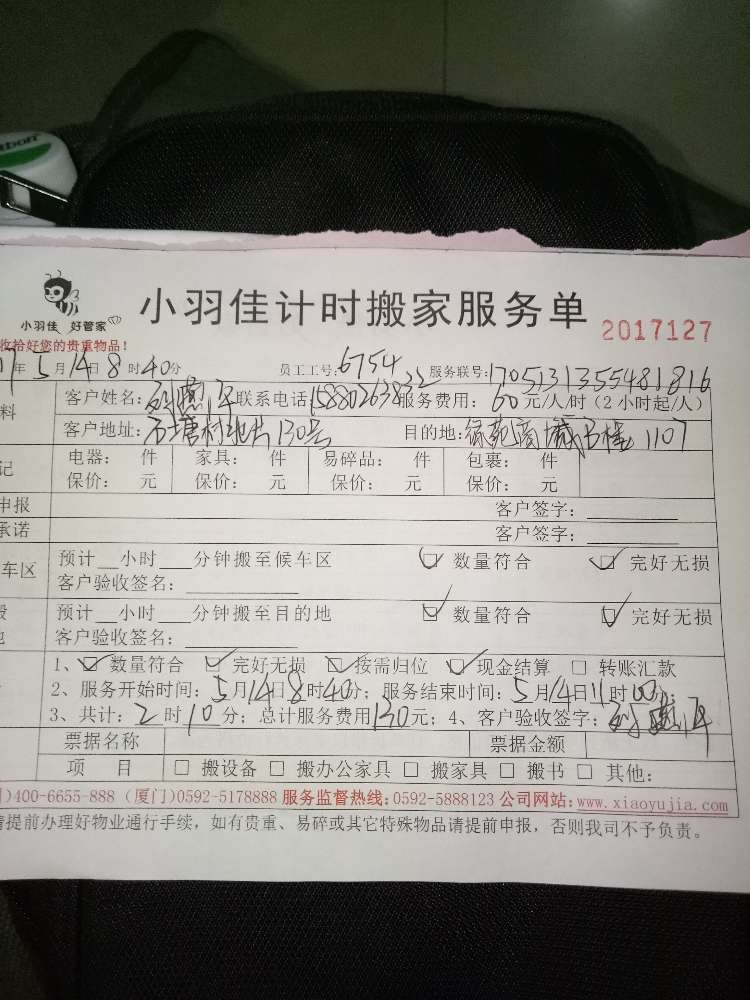 小羽佳 好管家
小羽佳计时搬家服务单
2017127
收拾好您的贵重物品!
17年5月14日8时40分 员工工号:6754 服务联号:1705131355481816
料 客户姓名: 联系电话 服务费用:60元/人/时(2小时起/人)
客户地址:石塘村 130号 目的地: 1107
记 电器: 件 家具: 件 易碎品: 件 包裹: 件
保价: 元 保价: 元 保价: 元 保价: 元
申报 客户签字:
承诺 客户签字:
车区 预计__小时___分钟搬至候车区 ☑ 数量符合 ☑ 完好无损
客户验收签名:
预计__小时___分钟搬至目的地 ☑ 数量符合 ☑ 完好无损
客户验收签名:
1、☑ 数量符合 ☑ 完好无损 ☑ 按需归位 ☑ 现金结算 □ 转账汇款
2、服务开始时间:5月14日8时40分;服务结束时间:5月14日11时00分;
3、共计:2时10分;总计服务费用130元;4、客户验收签字:
票据名称 票据金额
项 目 □ 搬设备 □ 搬办公家具 □ 搬家具 □ 搬书 □ 其他:
)400-6655-888 (厦门)0592-5178888 服务监督热线:0592-5888123 公司网站:www.xiaoyujia.com
请提前办理好物业通行手续,如有贵重、易碎或其它特殊物品请提前申报,否则我司不予负责。